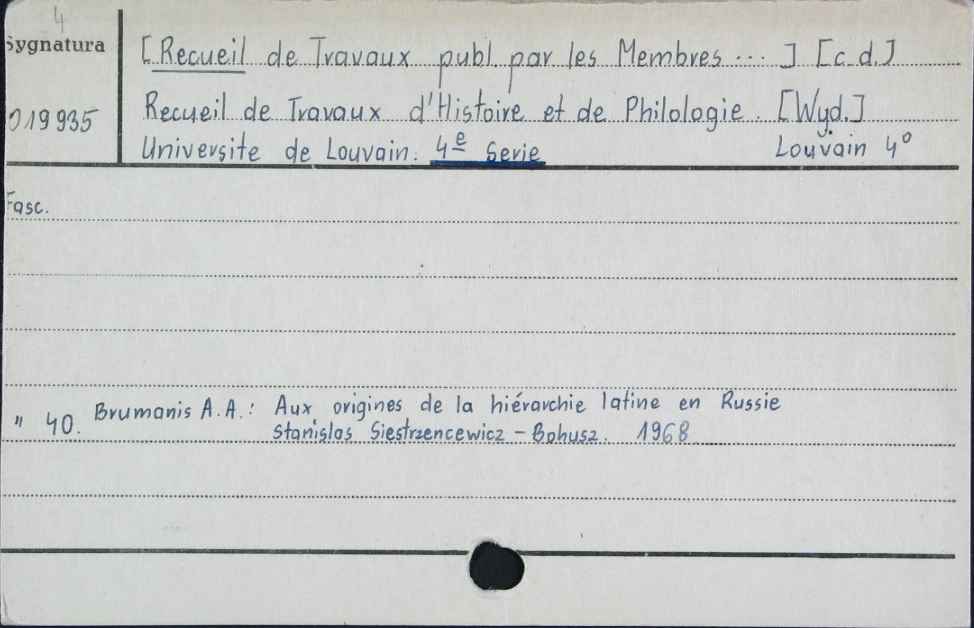 4
Sygnatura
[Recueil de Travaux publ. par les Membres ... ] [c.d.]
019935
Recueil de Travaux d'Histoire et de Philologie. [Wyd.]
Universite de Louvain. 4e Serie Louvain 4°
Fasc.
" 40. Brumanis A.A.: Aux origines de la hiérarchie latine en Russie
Stanislas Siestrzencewicz - Bohusz. 1968